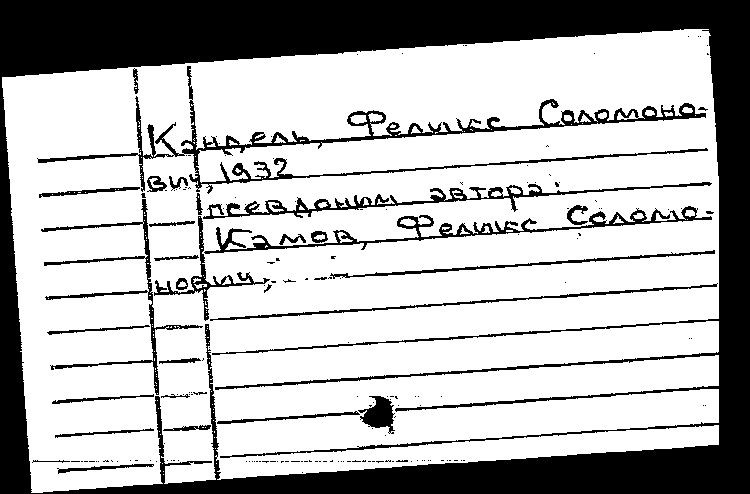 Кандель, Феликс Соломоно=
вич, 1932
псевдоним автора:
Камов, Феликс Соломо=
нович;